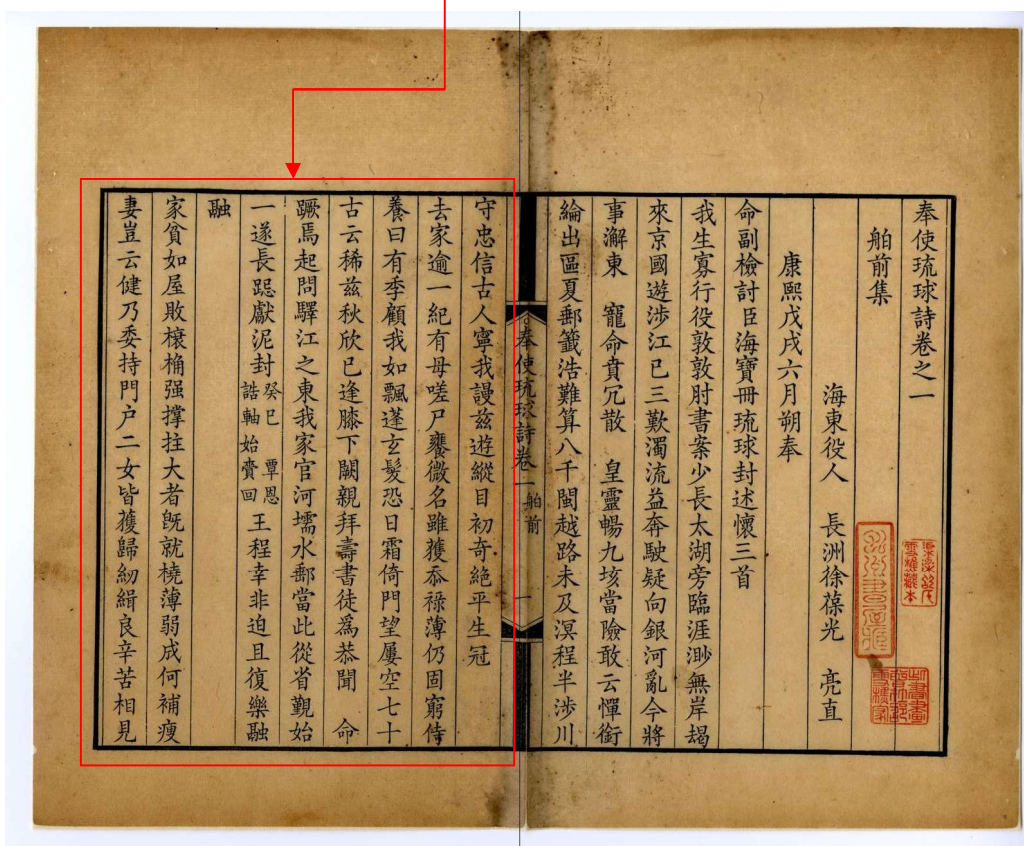 奉使琉球詩卷之一
舶前集
海東役人　長洲徐葆光　亮直
康熙戊戌六月朔奉
命副檢討臣海寶冊琉球封述懷三首
我生寡行役敦敦肘書案少長太湖旁臨涯渺無岸朅
來京國遊涉江已三歎濁流益奔駛疑向銀河亂今將
事澥東　寵命賁冗散　皇靈暢九垓當險敢云憚銜
綸出區夏郵籤浩難算八千閩越路未及溟程半涉川
奉使琉球詩卷一　舶前　一
守忠信古人寧我謾茲遊縱目初奇絶平生冠
去家逾一紀有母嗟尸饔微名雖獲忝祿薄仍固窮侍
養曰有季顧我如飄蓬玄髮恐日霜倚門望屢空七十
古云稀茲秋欣已逢膝下闕親拜壽書徒為恭聞　命
蹶焉起問驛江之東我家官河壖水郵當此從省覲始
一遂長跽獻泥封癸巳　覃恩誥軸始賫回王程幸非迫且復樂融
融
家貧如屋敗榱桷强撐拄大者旣就橈薄弱成何補瘦
妻豈云健乃委持門户二女皆獲歸紉緝良辛苦相見